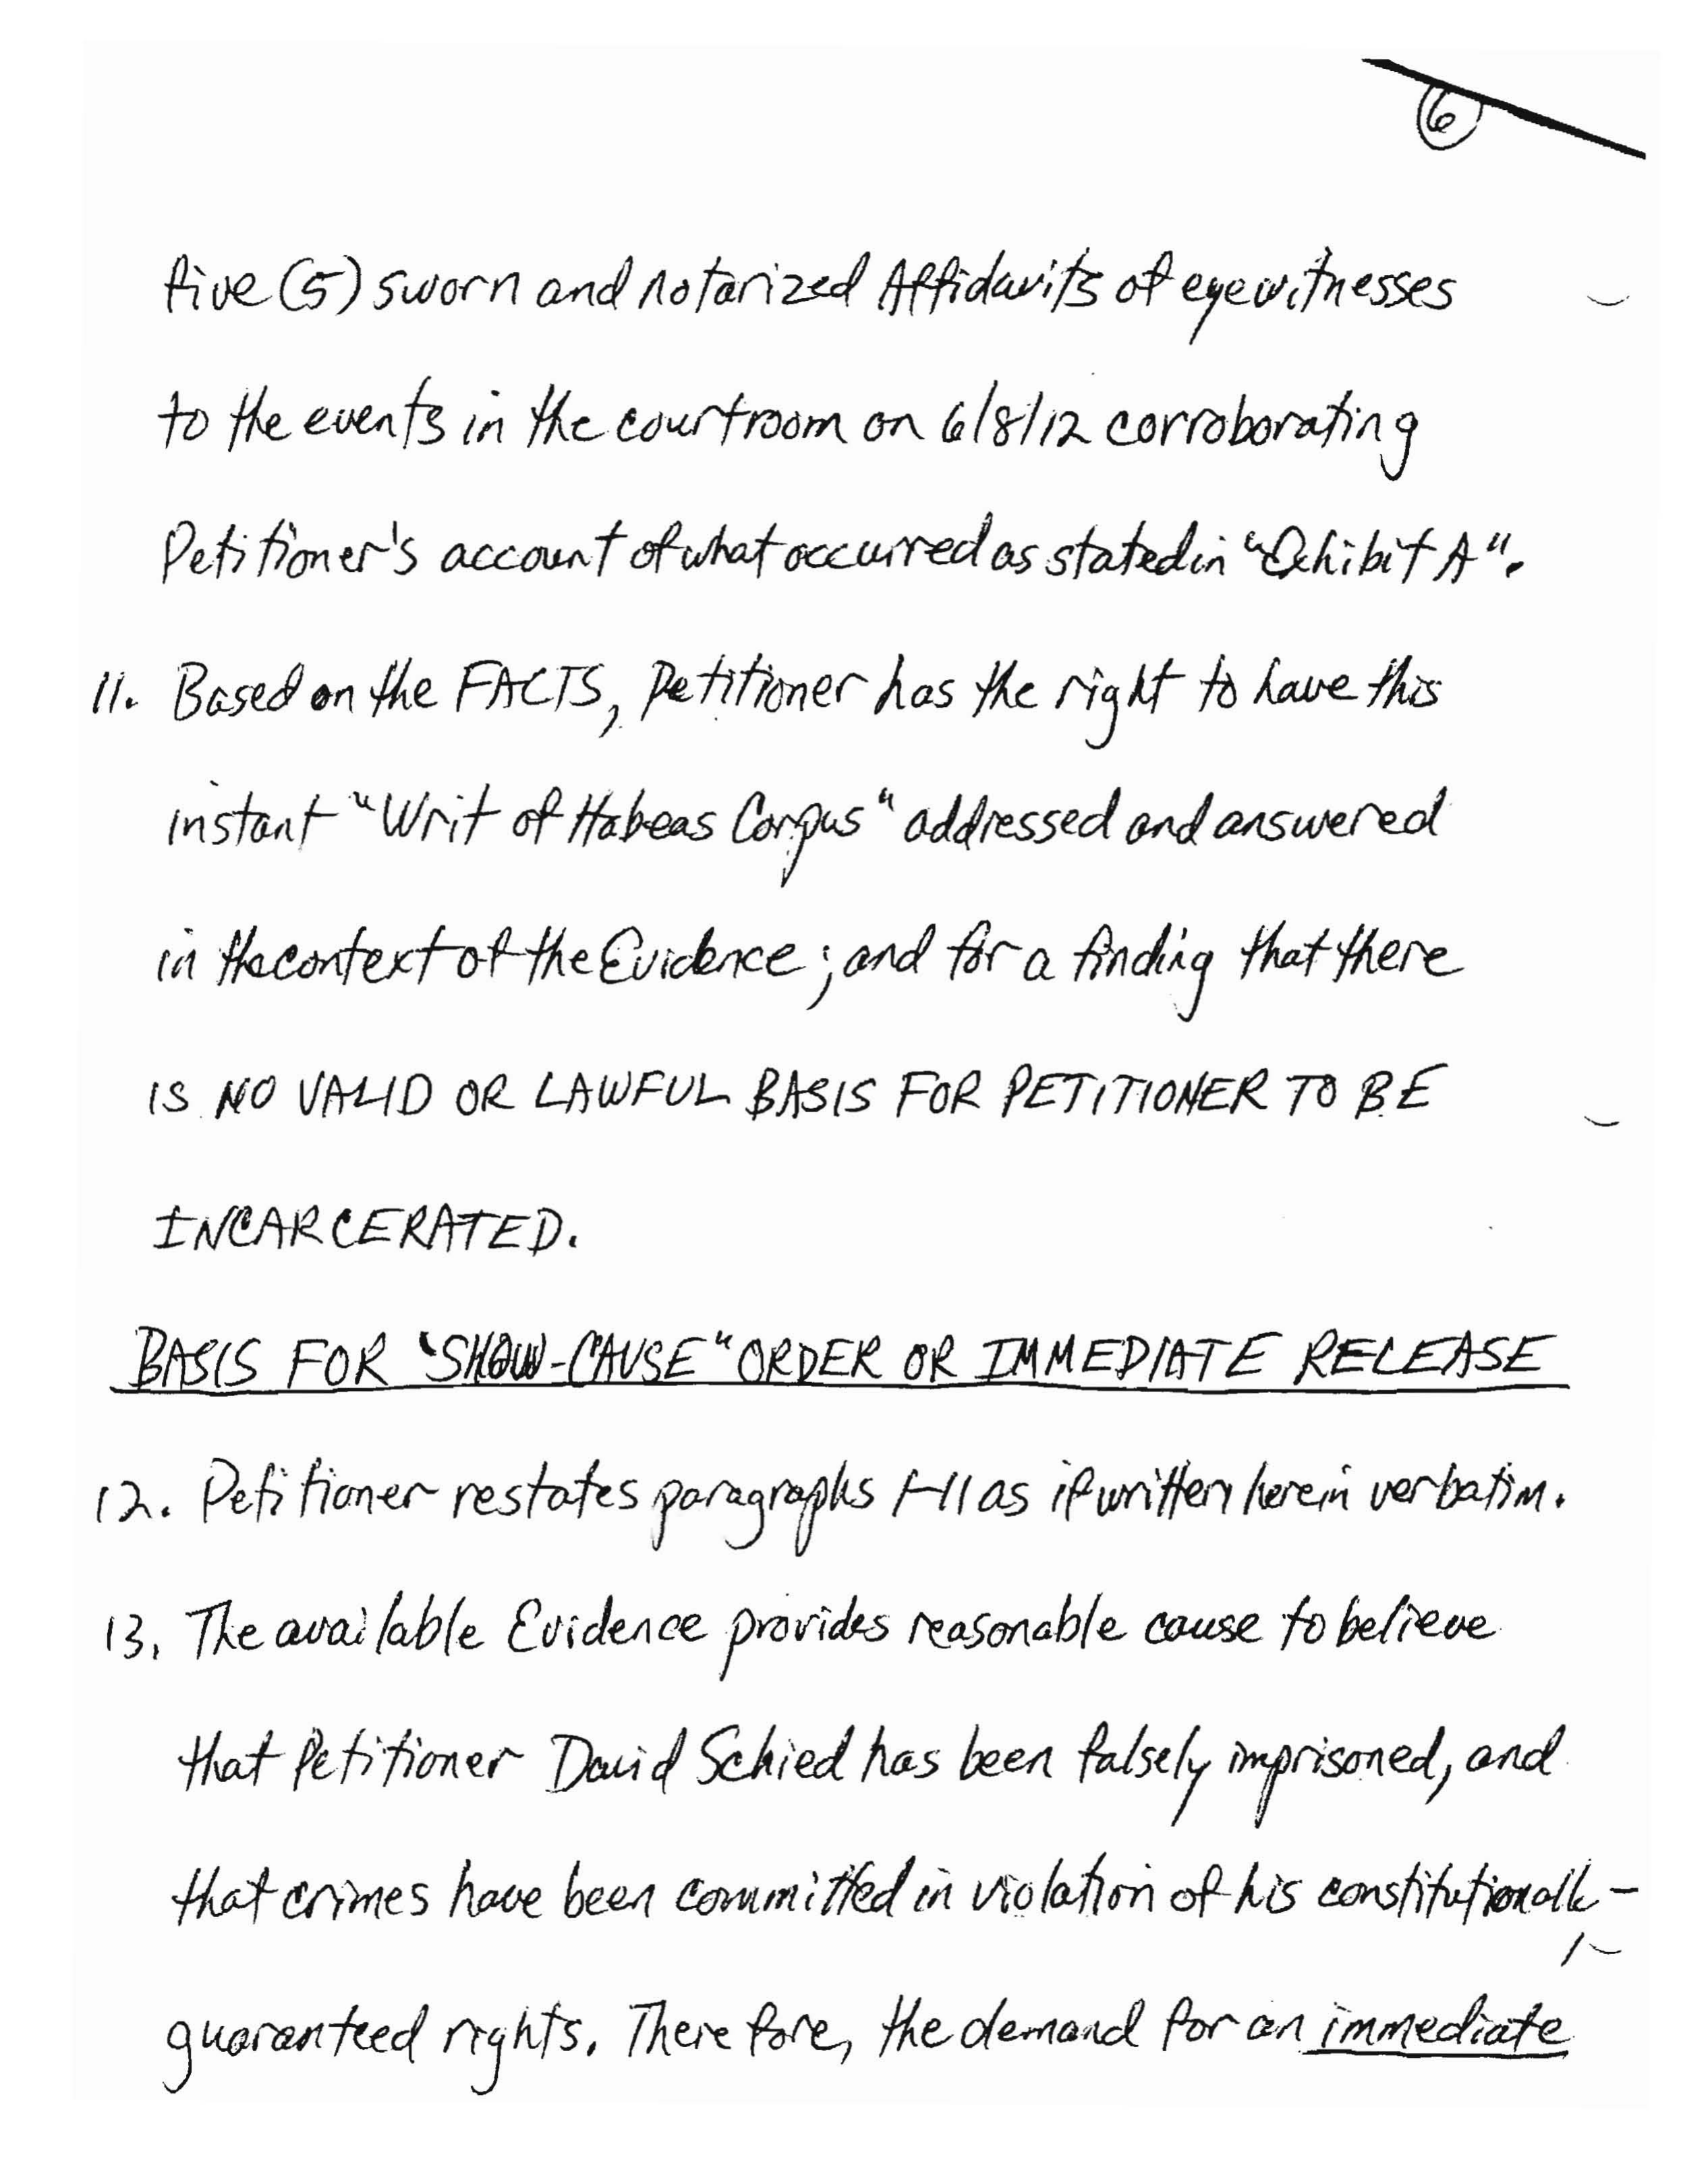 6
five (5) sworn and notarized Affidavits of eyewitnesses
to the events in the courtroom on 6/8/12 corroborating
Petitioner's account of what occurred as stated in "Exhibit A".
11. Based on the FACTS, Petitioner has the right to have this
instant "Writ of Habeas Corpus" addressed and answered
in the context of the Evidence; and for a finding that there
IS NO VALID OR LAWFUL BASIS FOR PETITIONER TO BE
INCARCERATED.
BASIS FOR "SHOW-CAUSE" ORDER OR IMMEDIATE RELEASE
12. Petitioner restates paragraphs 1-11 as if written herein verbatim.
13. The available Evidence provides reasonable cause to believe
that Petitioner David Schied has been falsely imprisoned, and
that crimes have been committed in violation of his constitutionally-
guaranteed rights. Therefore, the demand for an immediate